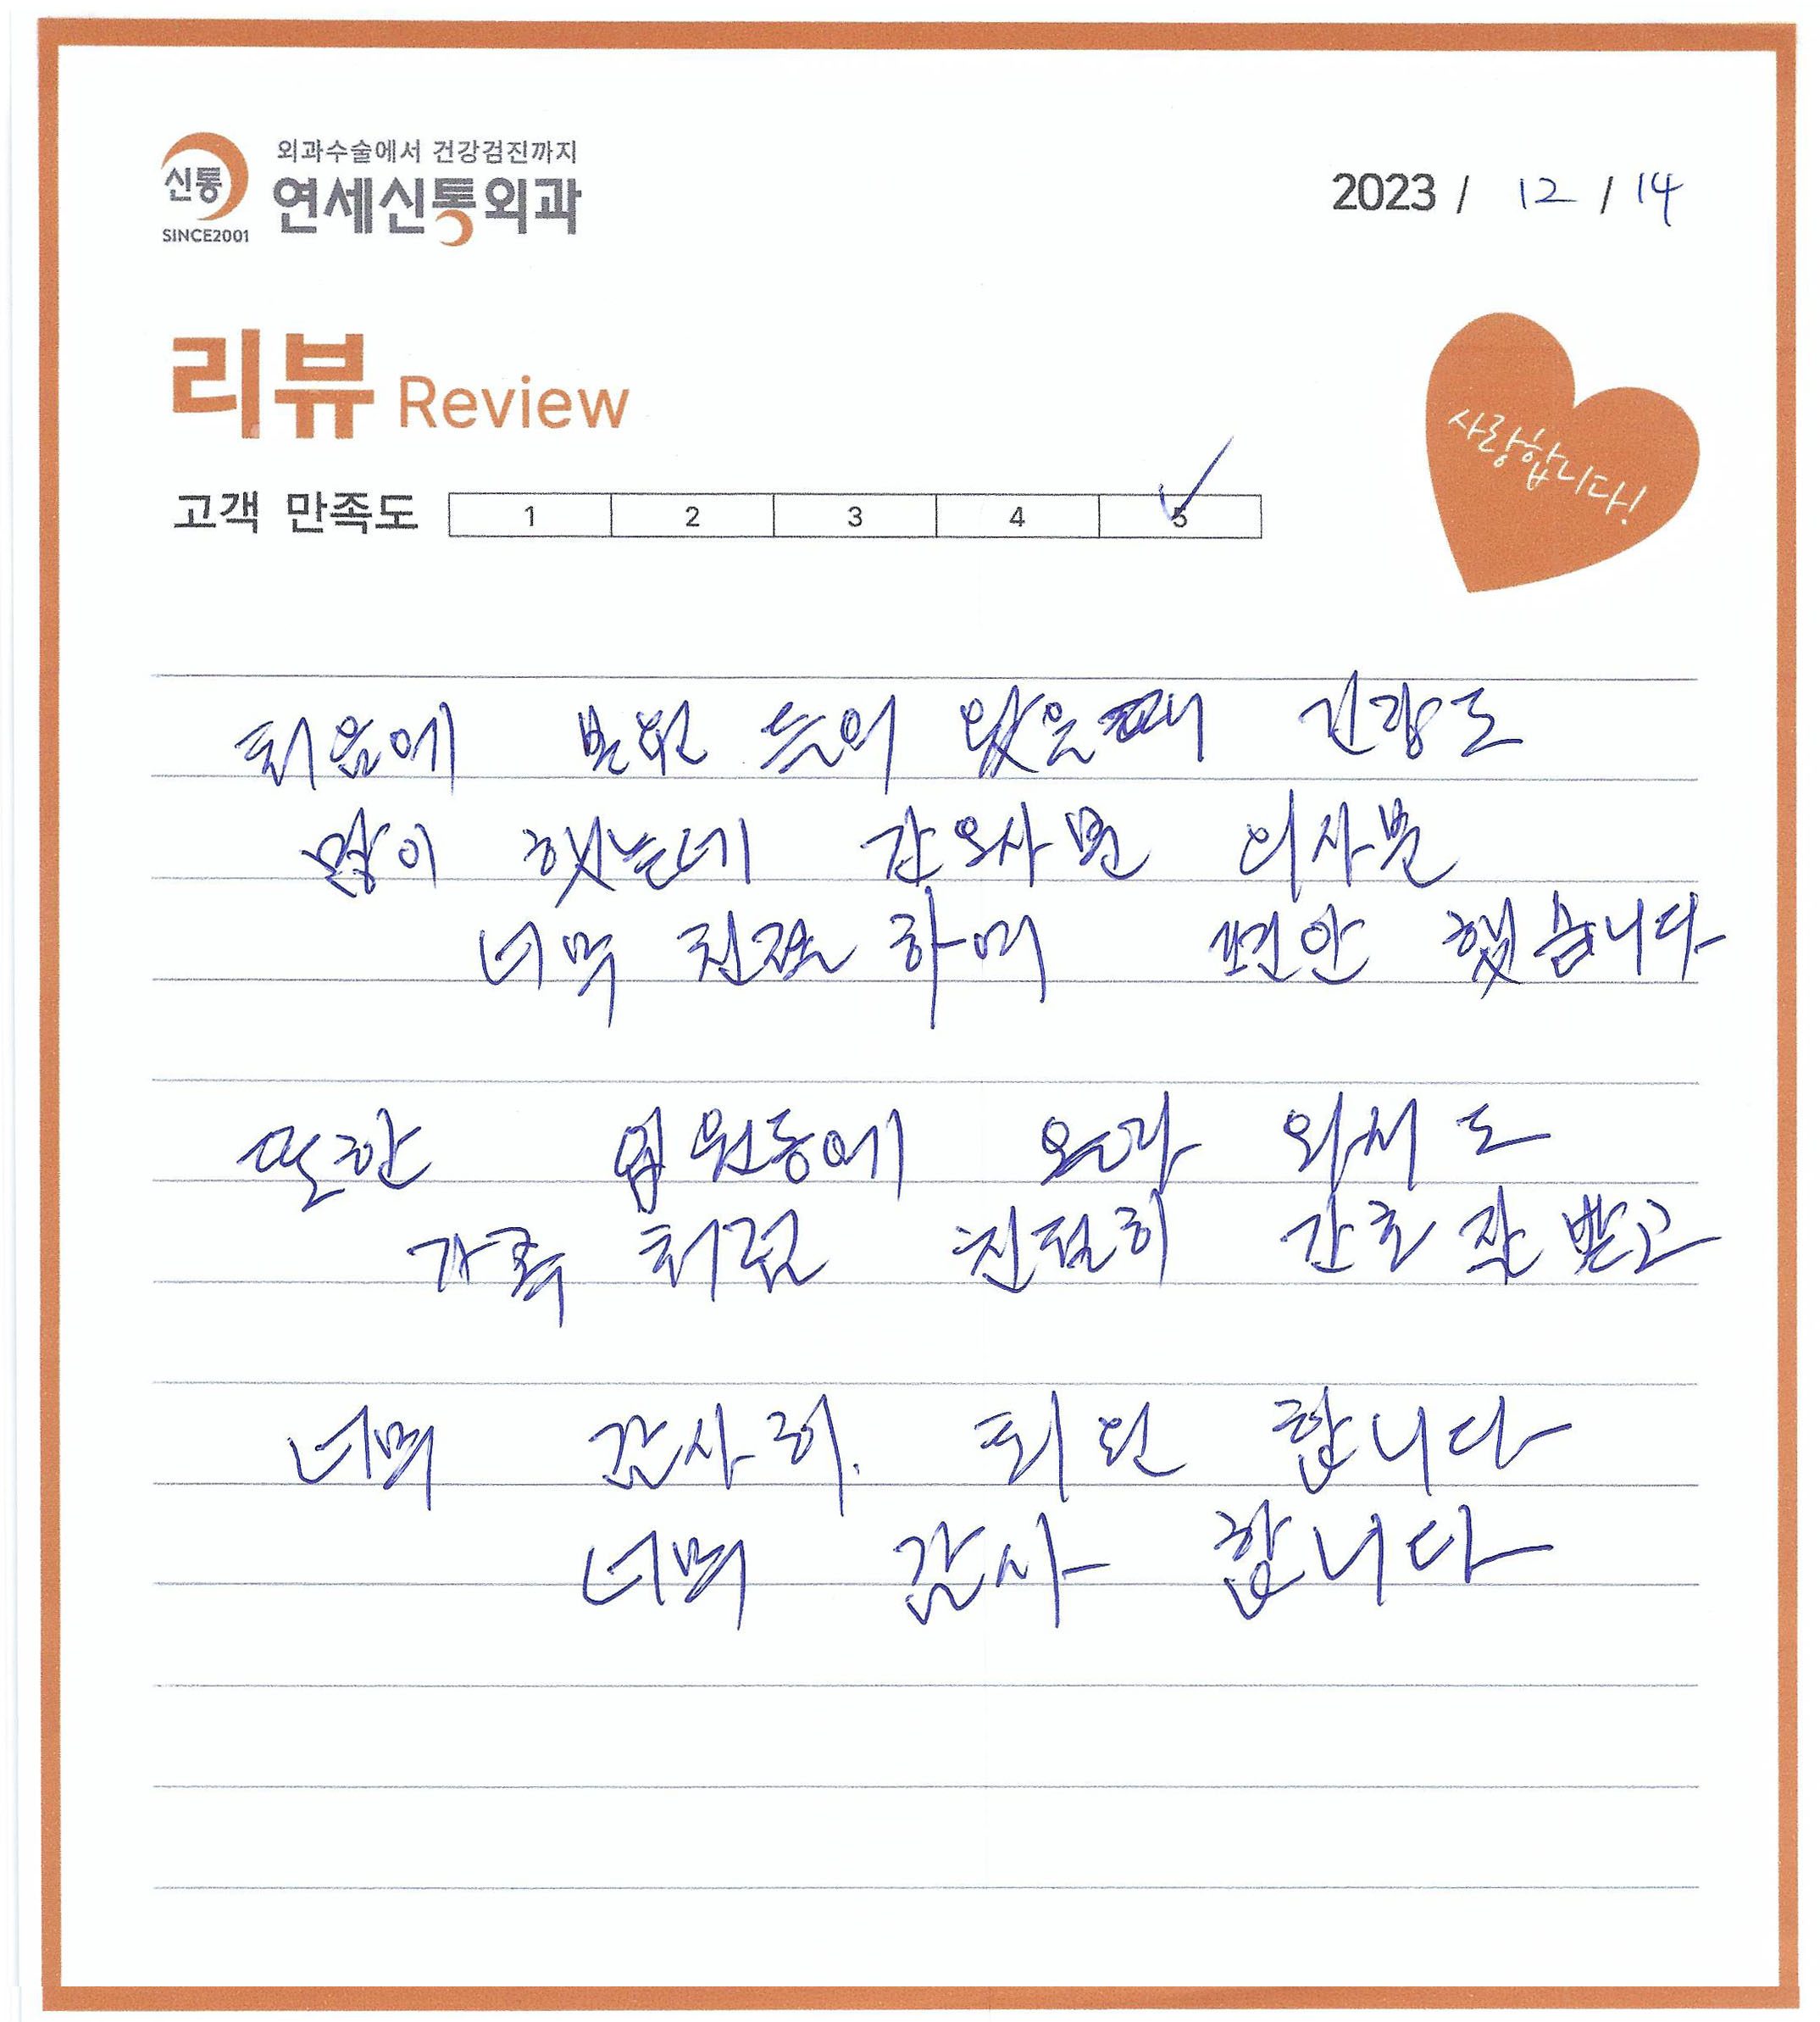 신통
SINCE2001
외과수술에서 건강검진까지
연세신통외과
2023 / 12 / 14
리뷰 Review
사랑합니다!
고객 만족도 1 2 3 4 5
처음에 병원 들어 왔을때 긴장도
많이 했는데 간호사분 의사분
너무 친절 하며 편안 했습니다
또한 입원동에 올라 와서도
가족 처럼 친절히 간호 잘 받고
너무 감사히. 퇴원 합니다
너무 감사 합니다